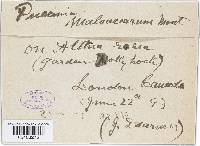 Puccinia Malvacearum Mont
on Althea rosea
(Garden Hollyhock)
London Canada
June 22nd 93
(J. Dearness)